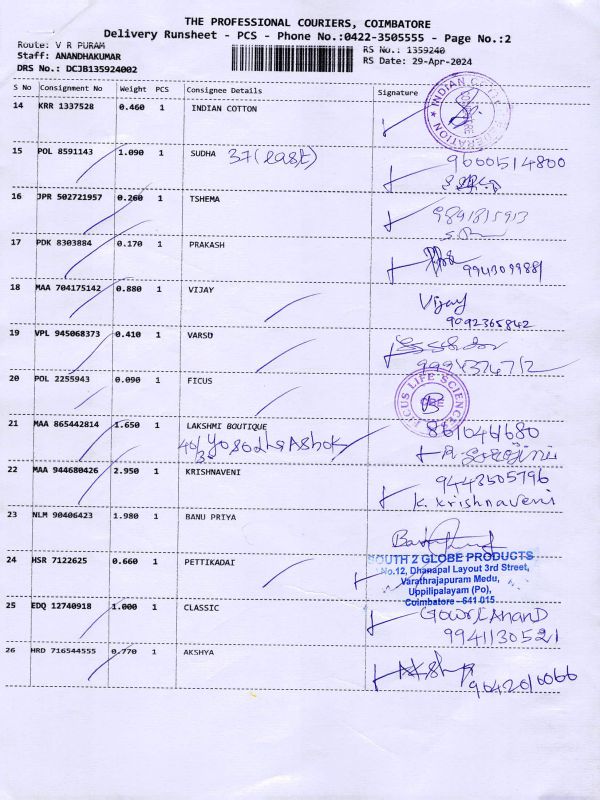 THE PROFESSIONAL COURIERS, COIMBATORE
Delivery Runsheet - PCS - Phone No.:0422-3505555 - Page No.:2
Route: V R PURAM
RS No.: 1359240
Staff: ANANDHAKUMAR
RS Date: 29-Apr-2024
DRS No.: DCJB135924002
S No Consignment No Weight PCS Consignee Details Signature
14 KRR 1337528 0.460 1 INDIAN COTTON
INDIAN COTTON
15 POL 8591143 1.090 1 SUDHA 37 (last) 9600514800
16 JPR 502721957 0.260 1 TSHEMA
17 PDK 8303884 0.170 1 PRAKASH
18 MAA 704175142 0.880 1 VIJAY Vijay
9092365842
19 VPL 945068373 0.410 1 VARSU
20 POL 2255943 0.090 1 FICUS
FICUS LIFE SCIENCES
21 MAA 865442814 1.650 1 LAKSHMI BOUTIQUE
Yosodha Ashok
22 MAA 944680426 2.950 1 KRISHNAVENI 9443505796
K. Krishnaveni
23 NLM 90406423 1.980 1 BANU PRIYA
24 HSR 7122625 0.660 1 PETTIKADAI
SOUTH 2 GLOBE PRODUCTS
No.12, Dhanapal Layout 3rd Street,
Varathrajapuram Medu,
Uppilipalayam (Po),
Coimbatore - 641 015
25 EDQ 12740918 1.000 1 CLASSIC Gowri Anand
9941130521
26 HRD 716544555 0.770 1 AKSHYA